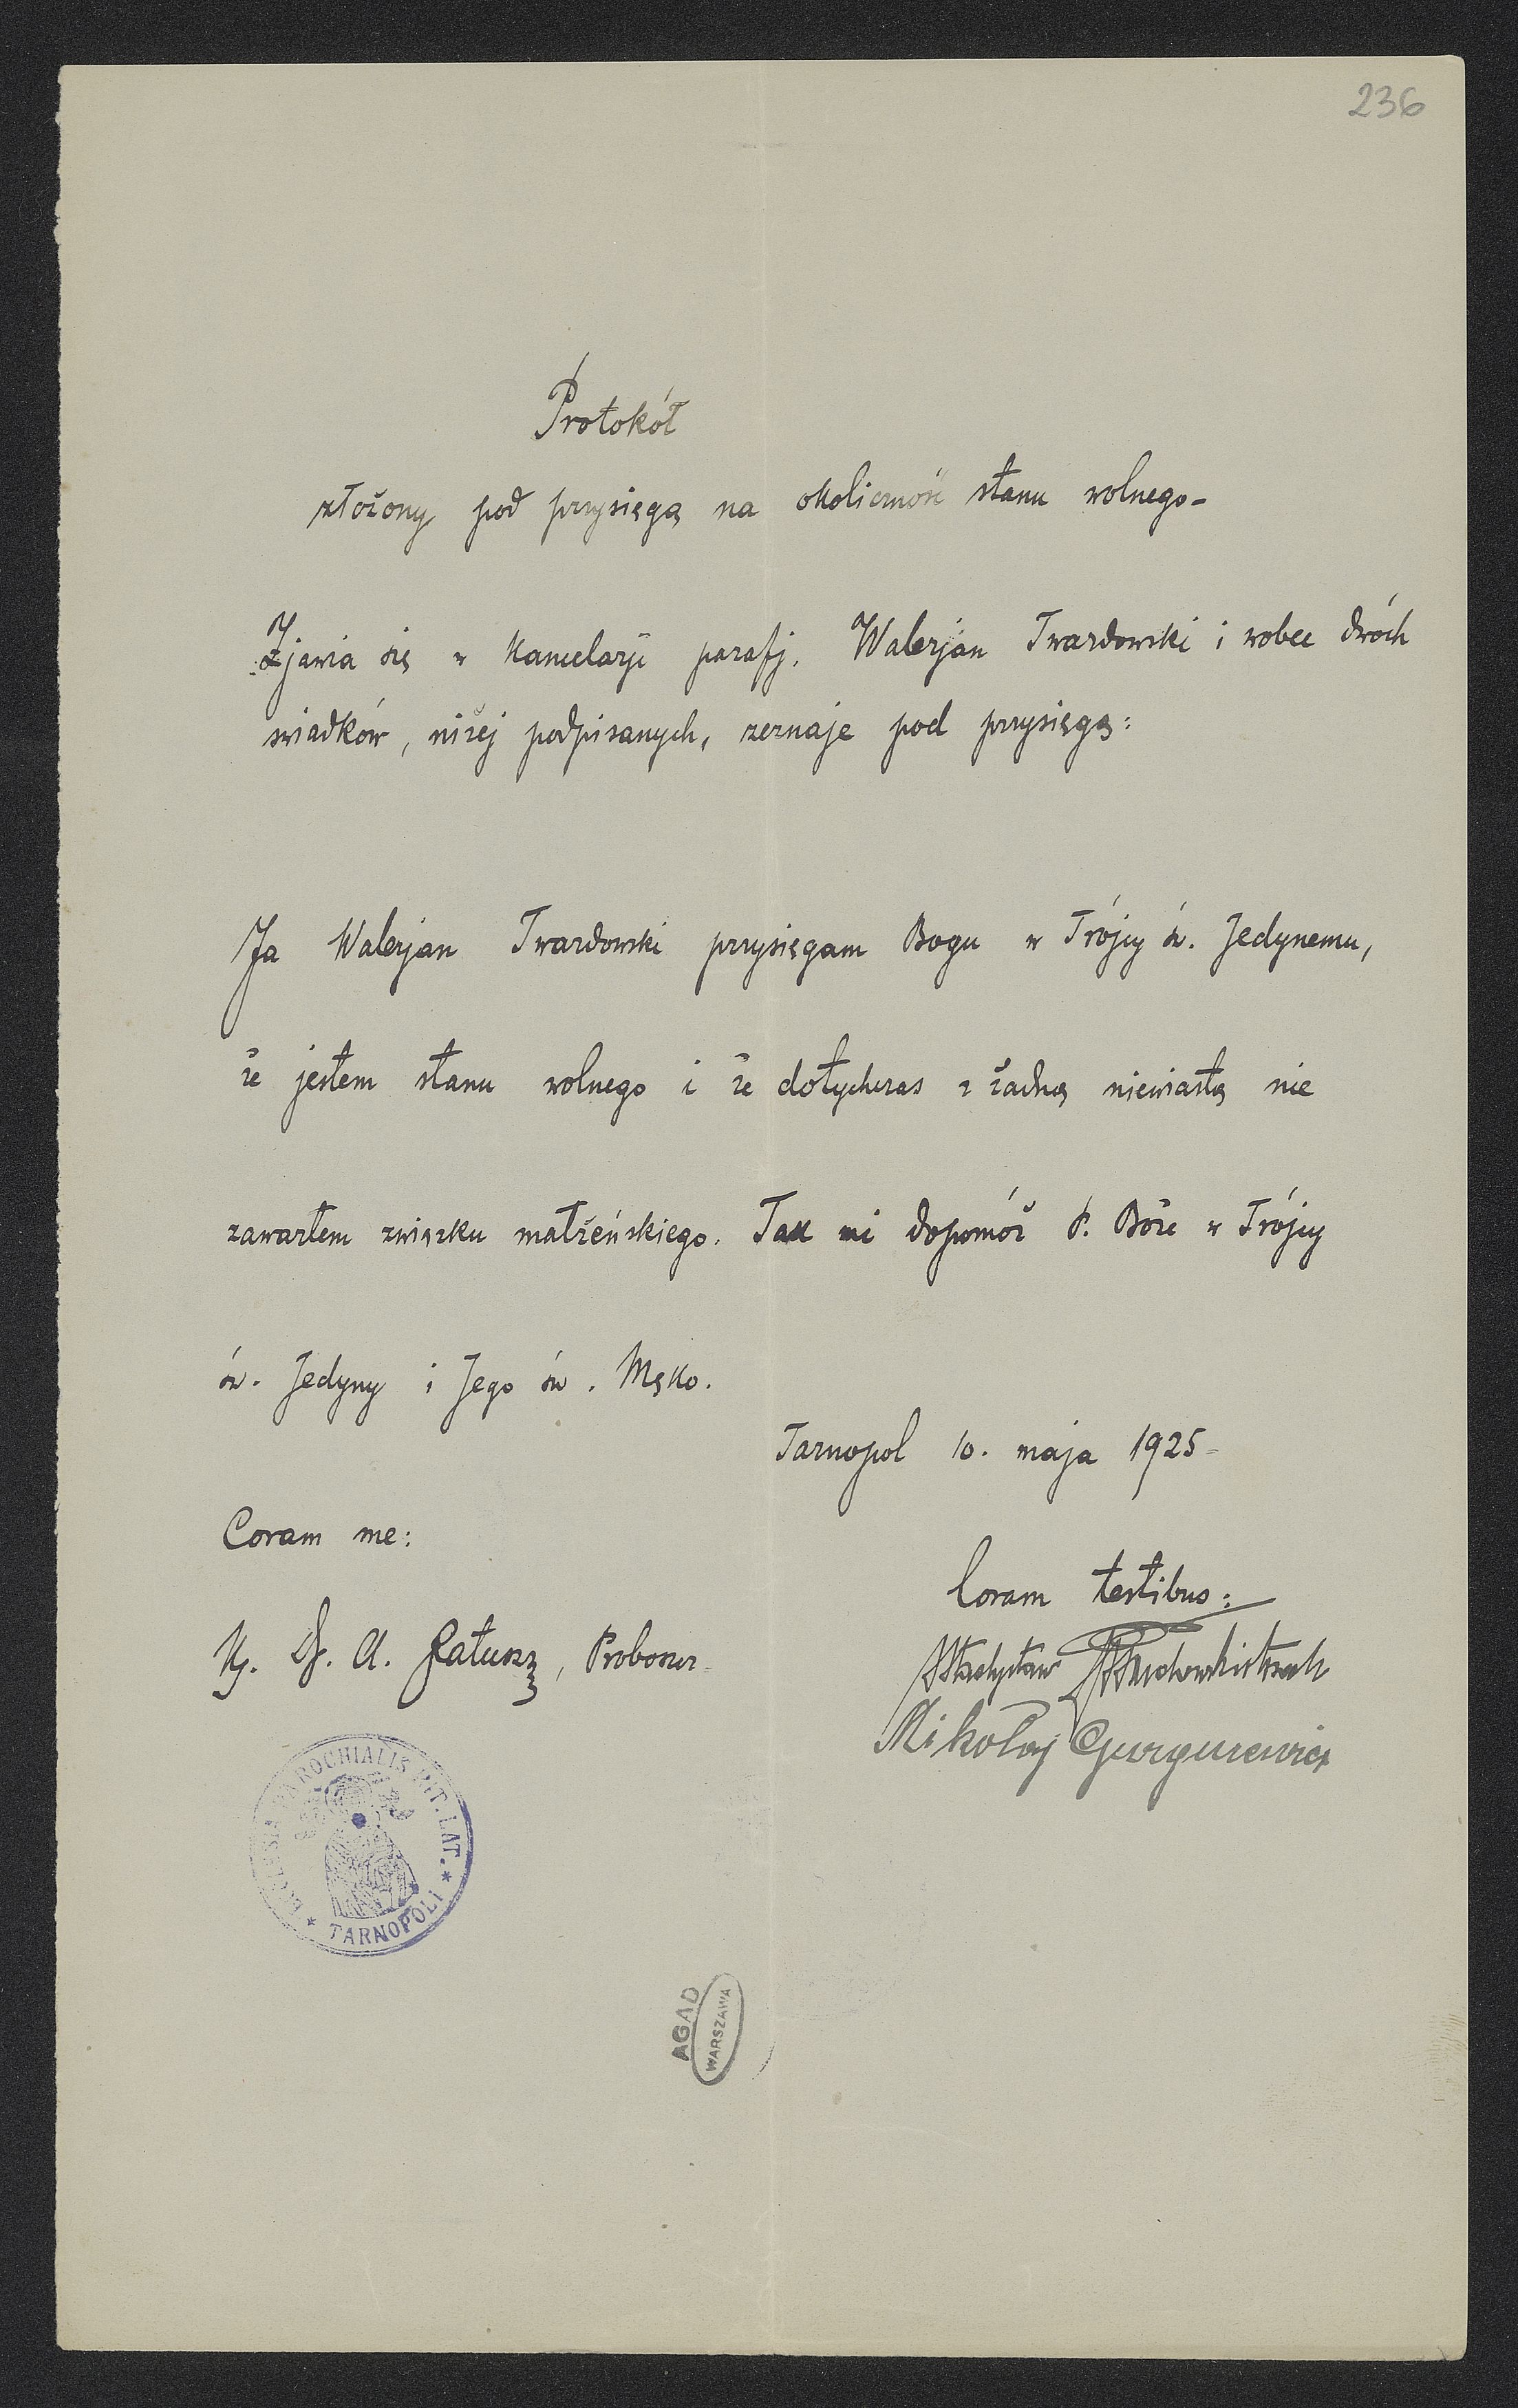 236
Protokół
złożony pod przysięgą na okoliczność stanu wolnego-
Zjawia się w Kancelarji parafj. Walerjan Twardowski i wobec dwóch
swiadków, niżej podpisanych, zeznaje pod przysięgą:
Ja Walerjan Twardowski przysięgam Bogu w Trójcy św. Jedynemu,
że jestem stanu wolnego i że dotychczas z żadną niewiastą nie
zawarłem związku małżeńskiego. Tak mi dopomóż P. Boże w Trójcy
św. Jedyny i Jego św. Męko.
Tarnopol 10. maja 1925-
Coram me:
Coram testibus:
Ks. Dr. A. Ratusz, Proboszcz
Władysław
Mikołaj Gurgurewicz
PAROCHIALIS RIT. LAT. * TARNOPOLI *
AGAD
WARSZAWA